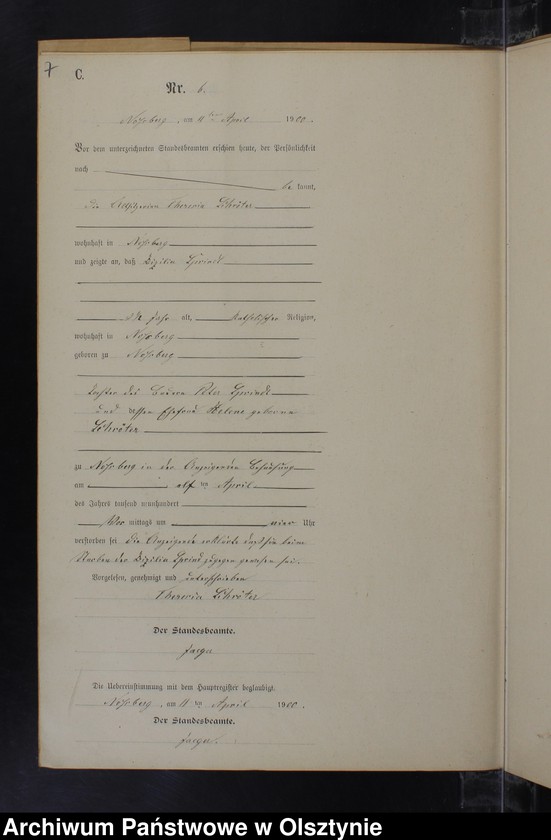 7
C.
Nr. 6.
Noßberg, am 11 ten April 1900.
Vor dem unterzeichneten Standesbeamten erschien heute, der Persönlichkeit
nach
be kannt,
die Theresia Schröter
wohnhaft in Noßberg
und zeigte an, daß
Jahr alt, katholischer Religion,
wohnhaft in Noßberg
geboren zu Noßberg
Tochter des Peter
und dessen Ehefrau Helene geborene
Schröter
zu Noßberg in der Anzeigenden Behausung
am elf ten April
des Jahres tausend neunhundert
Vor mittags um Uhr
verstorben sei. Die Anzeigende erklärte daß sie beim
Sterben der zugegen gewesen sei.
Vorgelesen, genehmigt und unterschrieben
Theresia Schröter
Der Standesbeamte.
Die Uebereinstimmung mit dem Hauptregister beglaubigt.
Noßberg, am 11 ten April 1900.
Der Standesbeamte.
Archiwum Państwowe w Olsztynie